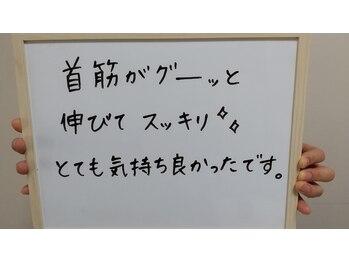 首筋がグーッと
伸びて スッキリ✨
とても気持ち良かったです。